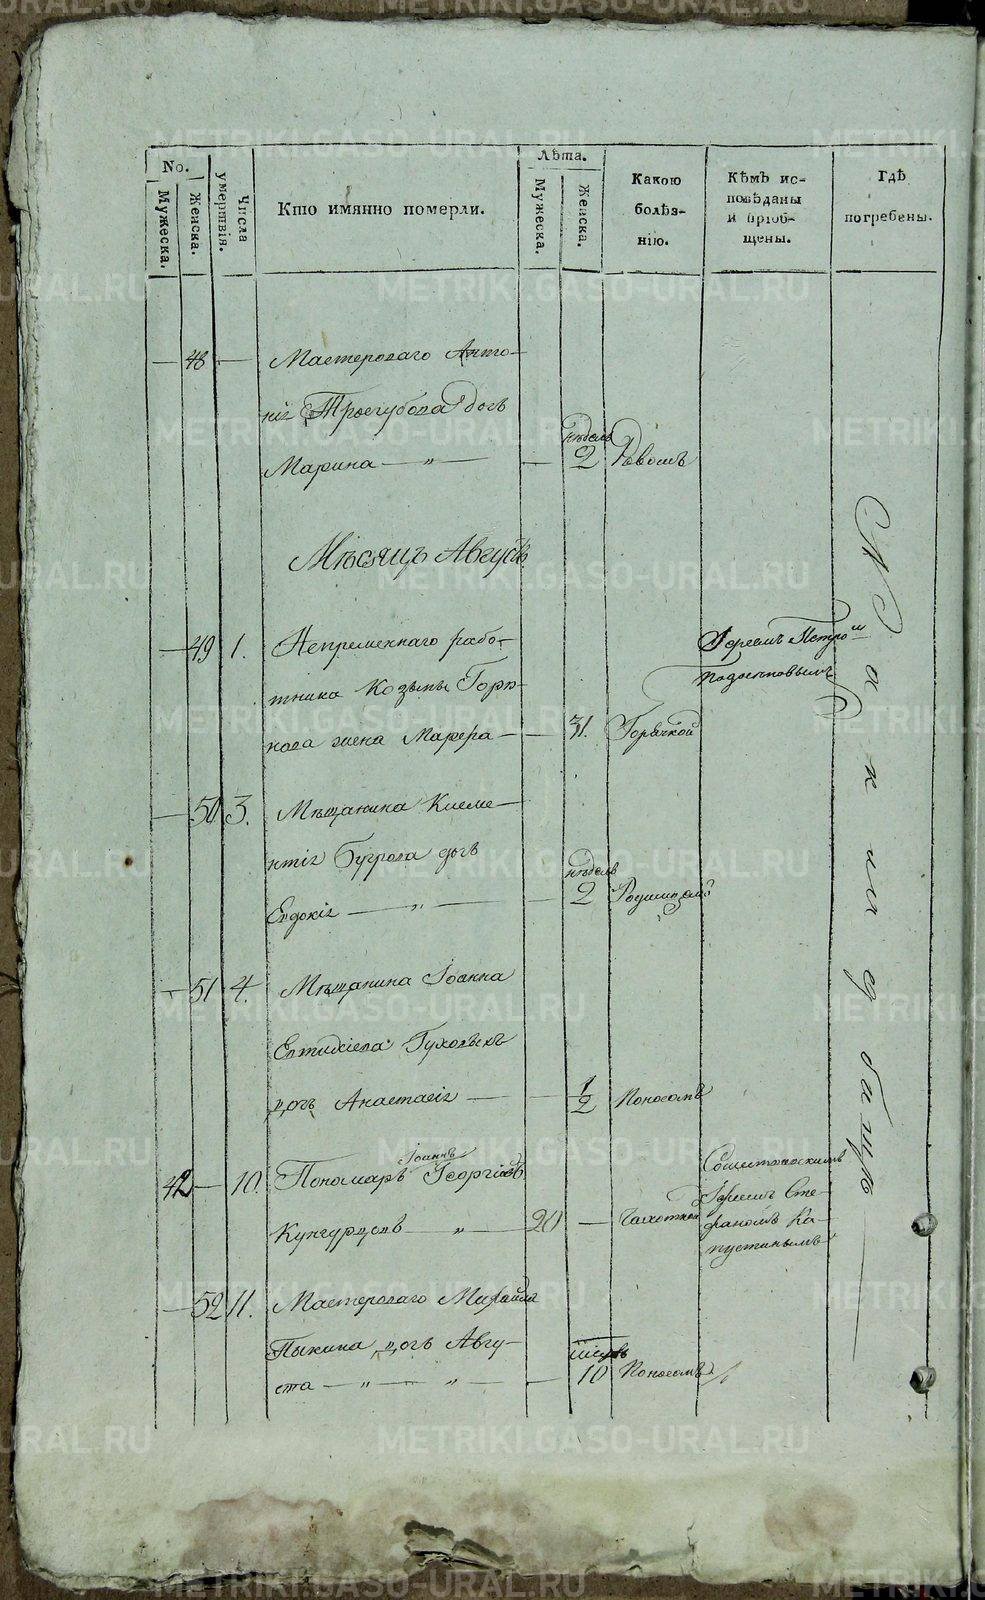 METRIKI.GASO-URAL.RU
No.
Мужеска.
Женска.
Числа умертвія.
Кто имянно померли.
Лѣта.
Мужеска.
Женска.
Какою болѣз-
нію.
Кѣмъ ис-
повѣданы
и пріоб-
щены.
Гдѣ
погребены.
— 48 — Мастероваго Анто-
нія Трегубова дочь
Марина — „ — — недель 2
Мѣсяцъ Августъ
— 49 1. Непременнаго рабо-
тника Козьмы Горн-
нова жена Марѳра — — 31. Горячкой
Іереемъ Петро
— 50 3. Мѣщанина Климе-
нтія Бугрова дочь
Евдокія — „ — — недель 2 Родимцомъ
— 51 4. Мѣщанина Іоанна
Евтихіева дочь Анастасія — — 1/2 Поносомъ
42 — 10. Пономарь Іоаннъ Георгіевъ
Кунгурцовъ — „ — 20 — Чахоткой
Іереемъ Сте-
фаномъ Ка-
пустинымъ
— 52 11. Мастероваго Михаила
Пыкина дочь Авгу-
ста — „ — „ — — 10 Поносомъ
На кладбищѣ